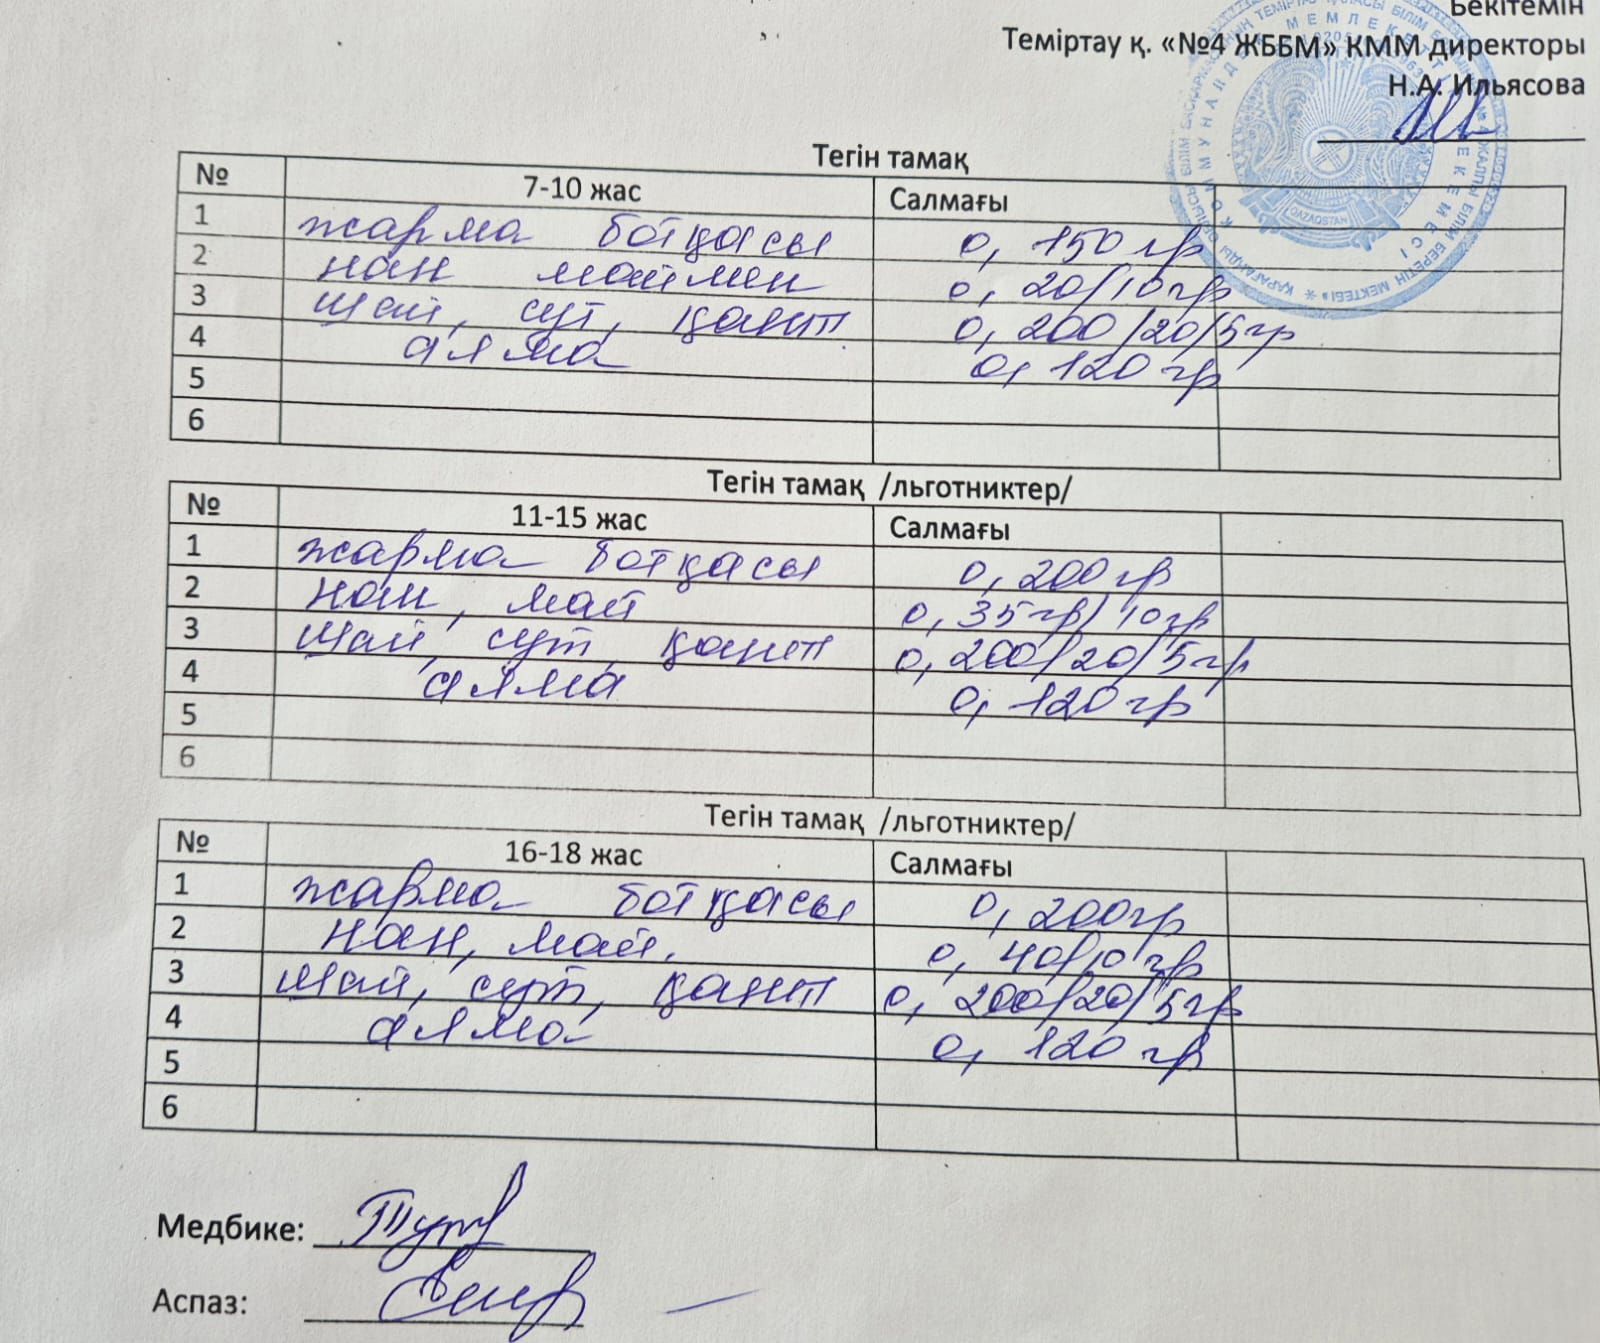 Бекітемін
Теміртау қ. «№4 ЖББМ» КММ директоры
Н.А. Ильясова
Тегін тамақ
№ 7-10 жас Салмағы
1 жарма ботқасы 0, 150 гр
2 нан маймен 0, 20/10 гр
3 шай, сүт, қант 0, 200/20/5гр
4 алма 0, 120 гр
5
6
Тегін тамақ /льготниктер/
№ 11-15 жас Салмағы
1 жарма ботқасы 0, 200 гр
2 нан, май 0, 35гр/10гр
3 шай, сүт, қант 0, 200/20/5гр
4 алма 0, 120 гр
5
6
Тегін тамақ /льготниктер/
№ 16-18 жас Салмағы
1 жарма ботқасы 0, 200гр
2 нан, май. 0, 40/10 гр
3 шай, сүт, қант 0, 200/20/5гр
4 алма 0, 120 гр
5
6
Медбике:
Аспаз:
QAZAQSTAN